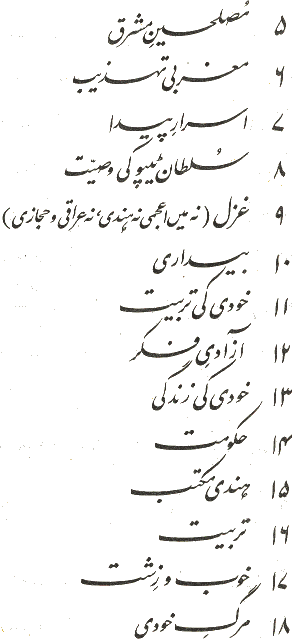 ۵ مُصلحینِ مشرق
۶ مغربی تہذیب
۷ اسرارِ پیدا
۸ سُلطان ٹیپو کی وصیّت
۹ غزل (نہ میں اعجمی نہ ہندی، نہ عراقی و حجازی)
۱۰ بیداری
۱۱ خودی کی تربیت
۱۲ آزادیِ فکر
۱۳ خودی کی زندگی
۱۴ حکومت
۱۵ ہندی مکتب
۱۶ تربیت
۱۷ خوب و زِشت
۱۸ مرگِ خودی